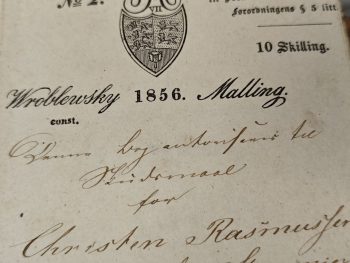 No 2.
Forordningens § 5 litt.
VII
10 Skilling.
Wroblewsky 1856. Malling.
const.
Denne Bog autoriseres til
Skudsmaal
for
Christen Rasmussen